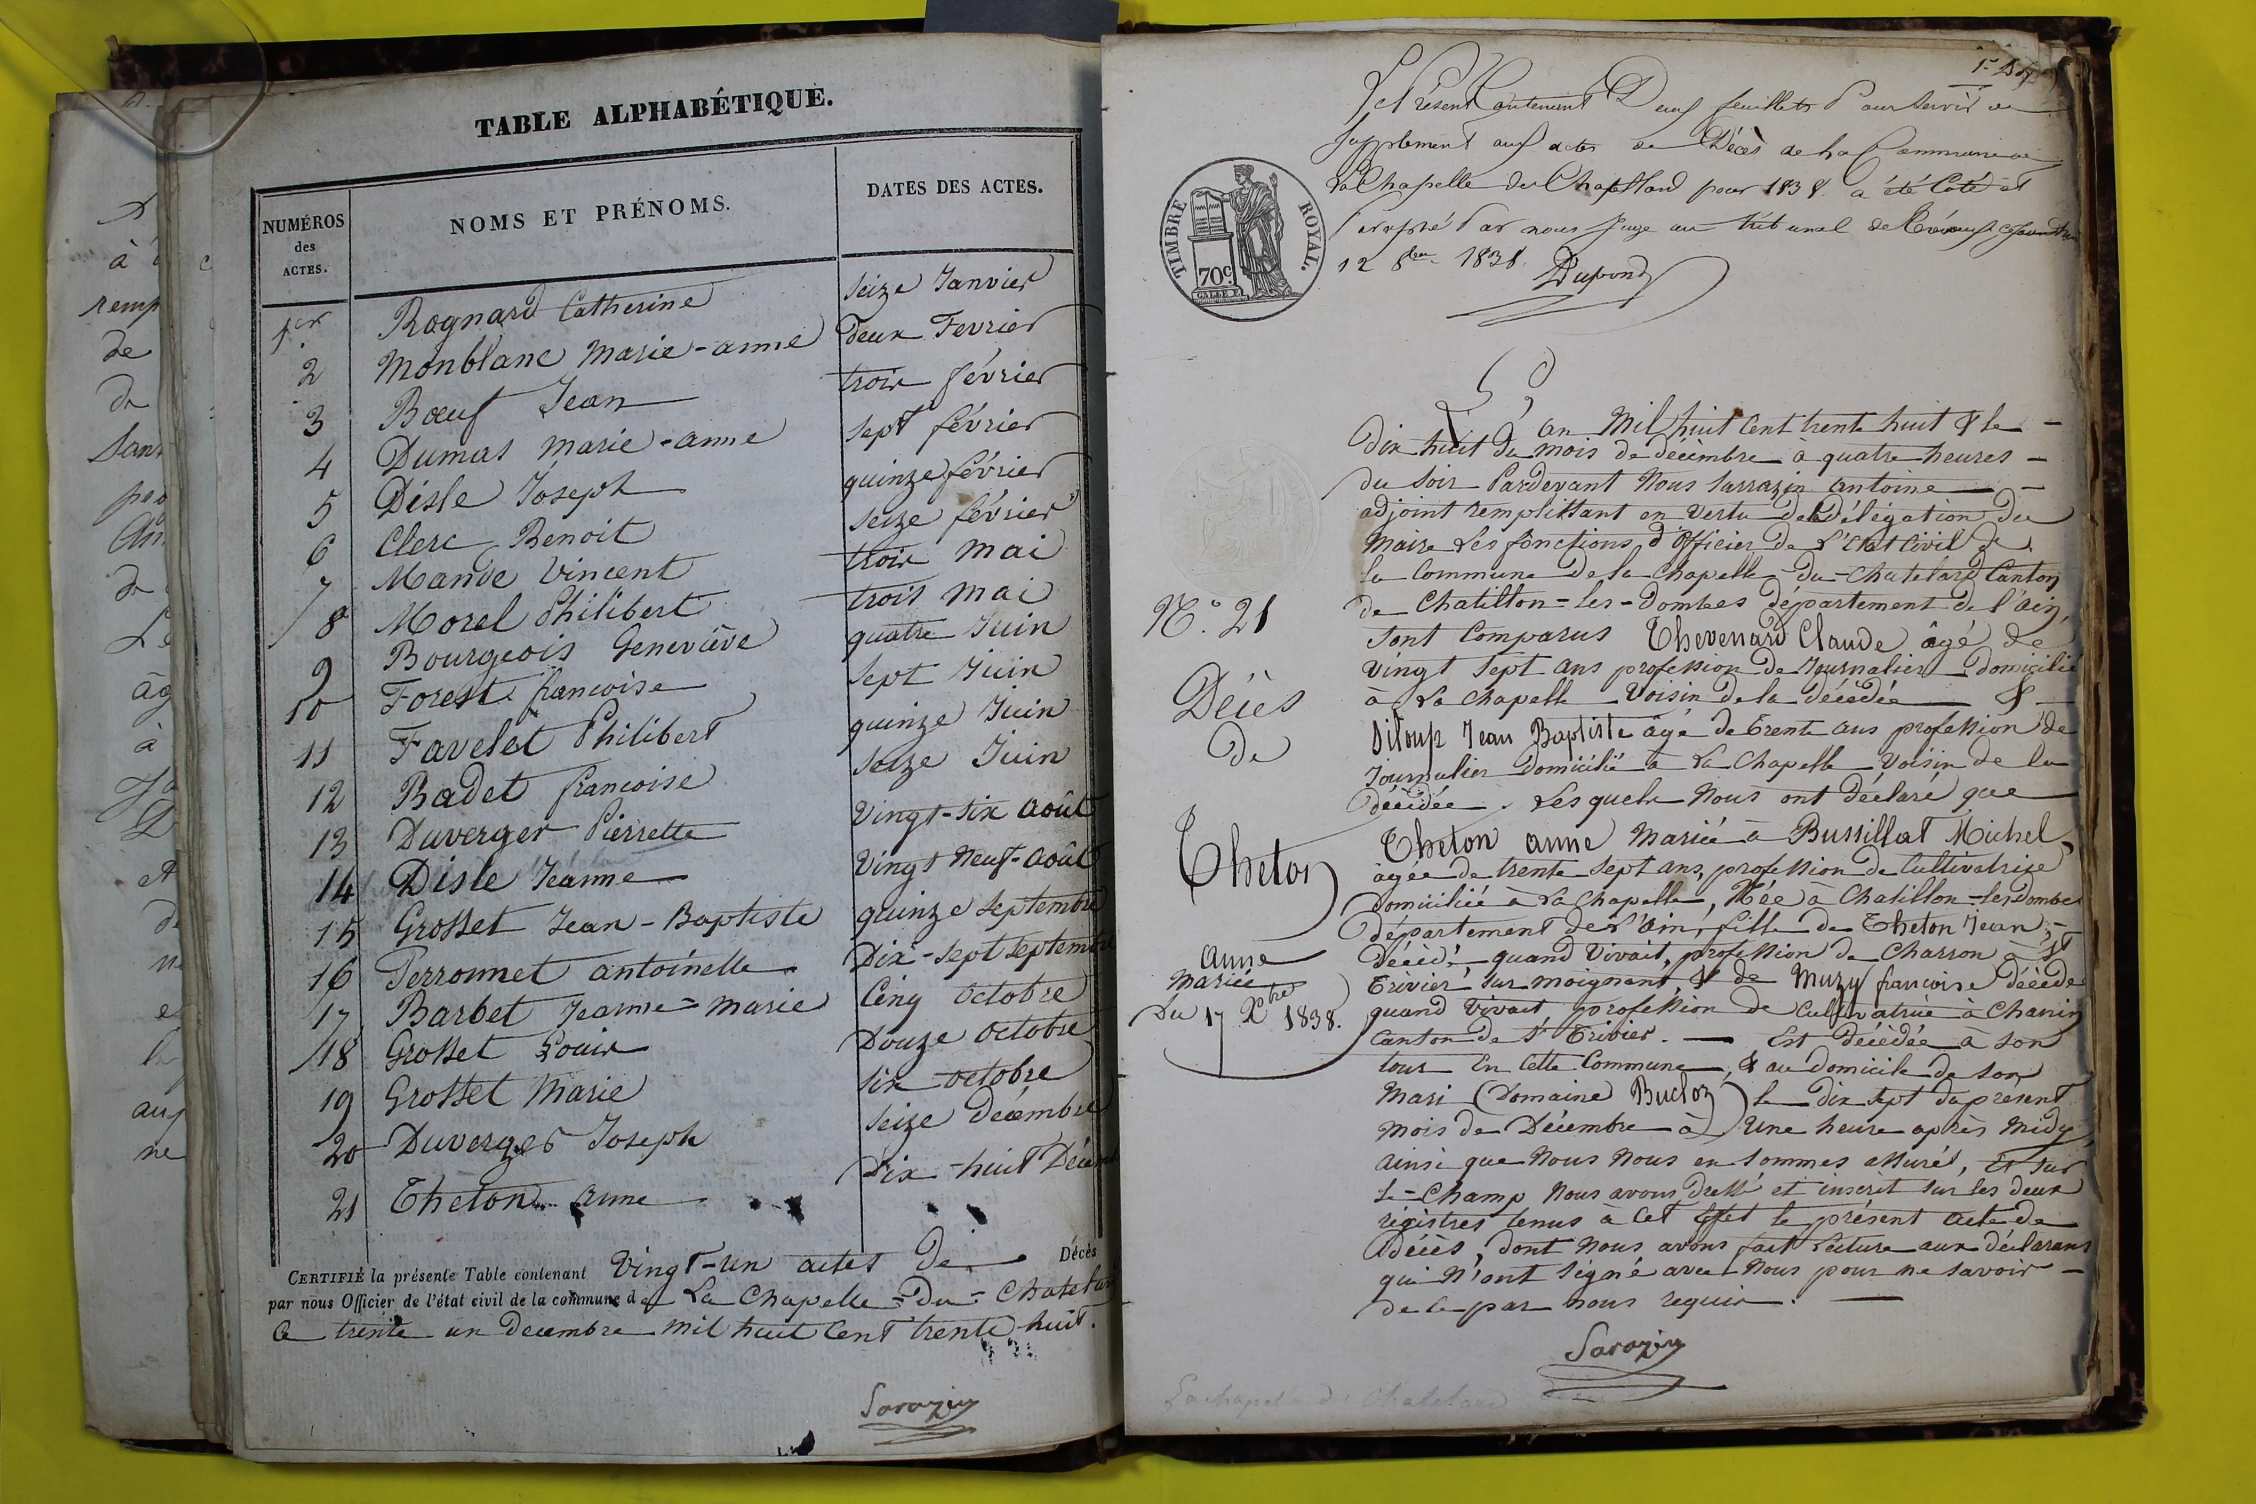 TABLE ALPHABÉTIQUE.
NUMÉROS des ACTES.
NOMS ET PRÉNOMS.
DATES DES ACTES.
1er Rognard Catherine seize Janvier
2 Monblanc Marie-anne Deux Fevrier
3 Bœuf Jean trois février
4 Dumas Marie-anne sept février
5 Disle Joseph quinze février
6 Clerc Benoit seize février
7 Mande Vincent trois mai
8 Morel Philibert trois mai
9 Bourgeois Geneviève quatre Juin
10 Forest francoise sept Juin
11 Favelet Philibert quinze Juin
12 Badet francoise seize Juin
13 Duverger Pierrette Vingt-six août
14 Disle Jeanne Vingt Neuf-août
15 Grosset Jean-Baptiste quinze septembre
16 Perronnet antoinette Dix-sept septembre
17 Barbet Jeanne-Marie Cinq octobre
18 Grosset Louis Douze octobre
19 Grosset Marie six octobre
20 Duverger Joseph seize Décembre
21 Theton anne Dix-huit Décem
CERTIFIÉ la présente Table contenant Vingt-un actes De Décès
par nous Officier de l'état civil de la commune de La Chapelle-Du-Chatelar
Ce trente un decembre mil huit Cent trente huit.
Sarazin
Le Présent Contenant Deux feuillets Pour servir de
supplement aux actes de Décès de la Commune de
la Chapelle du Chatelard pour 1838 a été Coté et
Paraphé Par nous Juge au tribunal de Trévoux
12 8bre 1838.
Dupond
TIMBRE ROYAL.
70c.
L'an Mil huit Cent trente huit & le
Dix huit du mois de décembre à quatre heures
du soir Pardevant Nous Sarrazin Antoine
adjoint remplissant en Vertu De la délégation du
Maire Les fonctions d'Officier de L'Etat Civil de
la Commune De la Chapelle-du-Chatelard Canton
N.° 21
de Chatillon-les-Dombes département De l'ain,
sont Comparus Thevenard Claude âgé de
Vingt sept ans profession de Journalier domicilié
Décès
à La Chapelle Voisin de la Décédée &
De
Diloup Jean Baptiste âgé de trente ans profession de
Journalier domicilié à La Chapelle Voisin de la
décédée. Lesquels Nous ont déclaré que
Theton
Theton anne Mariée à Bussillat Michel,
âgée de trente sept ans, profession de Cultivatrice
domiciliée à La Chapelle, Née à Chatillon-les Dombes
département de L'ain, fille de Theton Jean,
anne
décédé quand Vivait, profession de Charron à St
Mariée
Trivier sur moignans, & de Muzy francoise Décédée
Du 17 Xbre 1838.
quand Vivait profession de Cultivatrice à Chanin
Canton de St Trivier. Est décédée à son
tour En Cette Commune, & au domicile de son
Mari (Domaine Bucloz) le dix sept du présent
mois de Décembre à Une heure après Midy,
ainsi que Nous Nous en sommes assurés, Et sur
le-Champ Nous avons Dressé et inscrit sur les deux
régistres tenus à Cet Effet le présent acte de
décès, dont Nous avons fait Lecture aux déclarans
qui N'ont signé avec Nous pour ne savoir
de ce par nous requis.
Sarazin
La chapelle du Chatelard